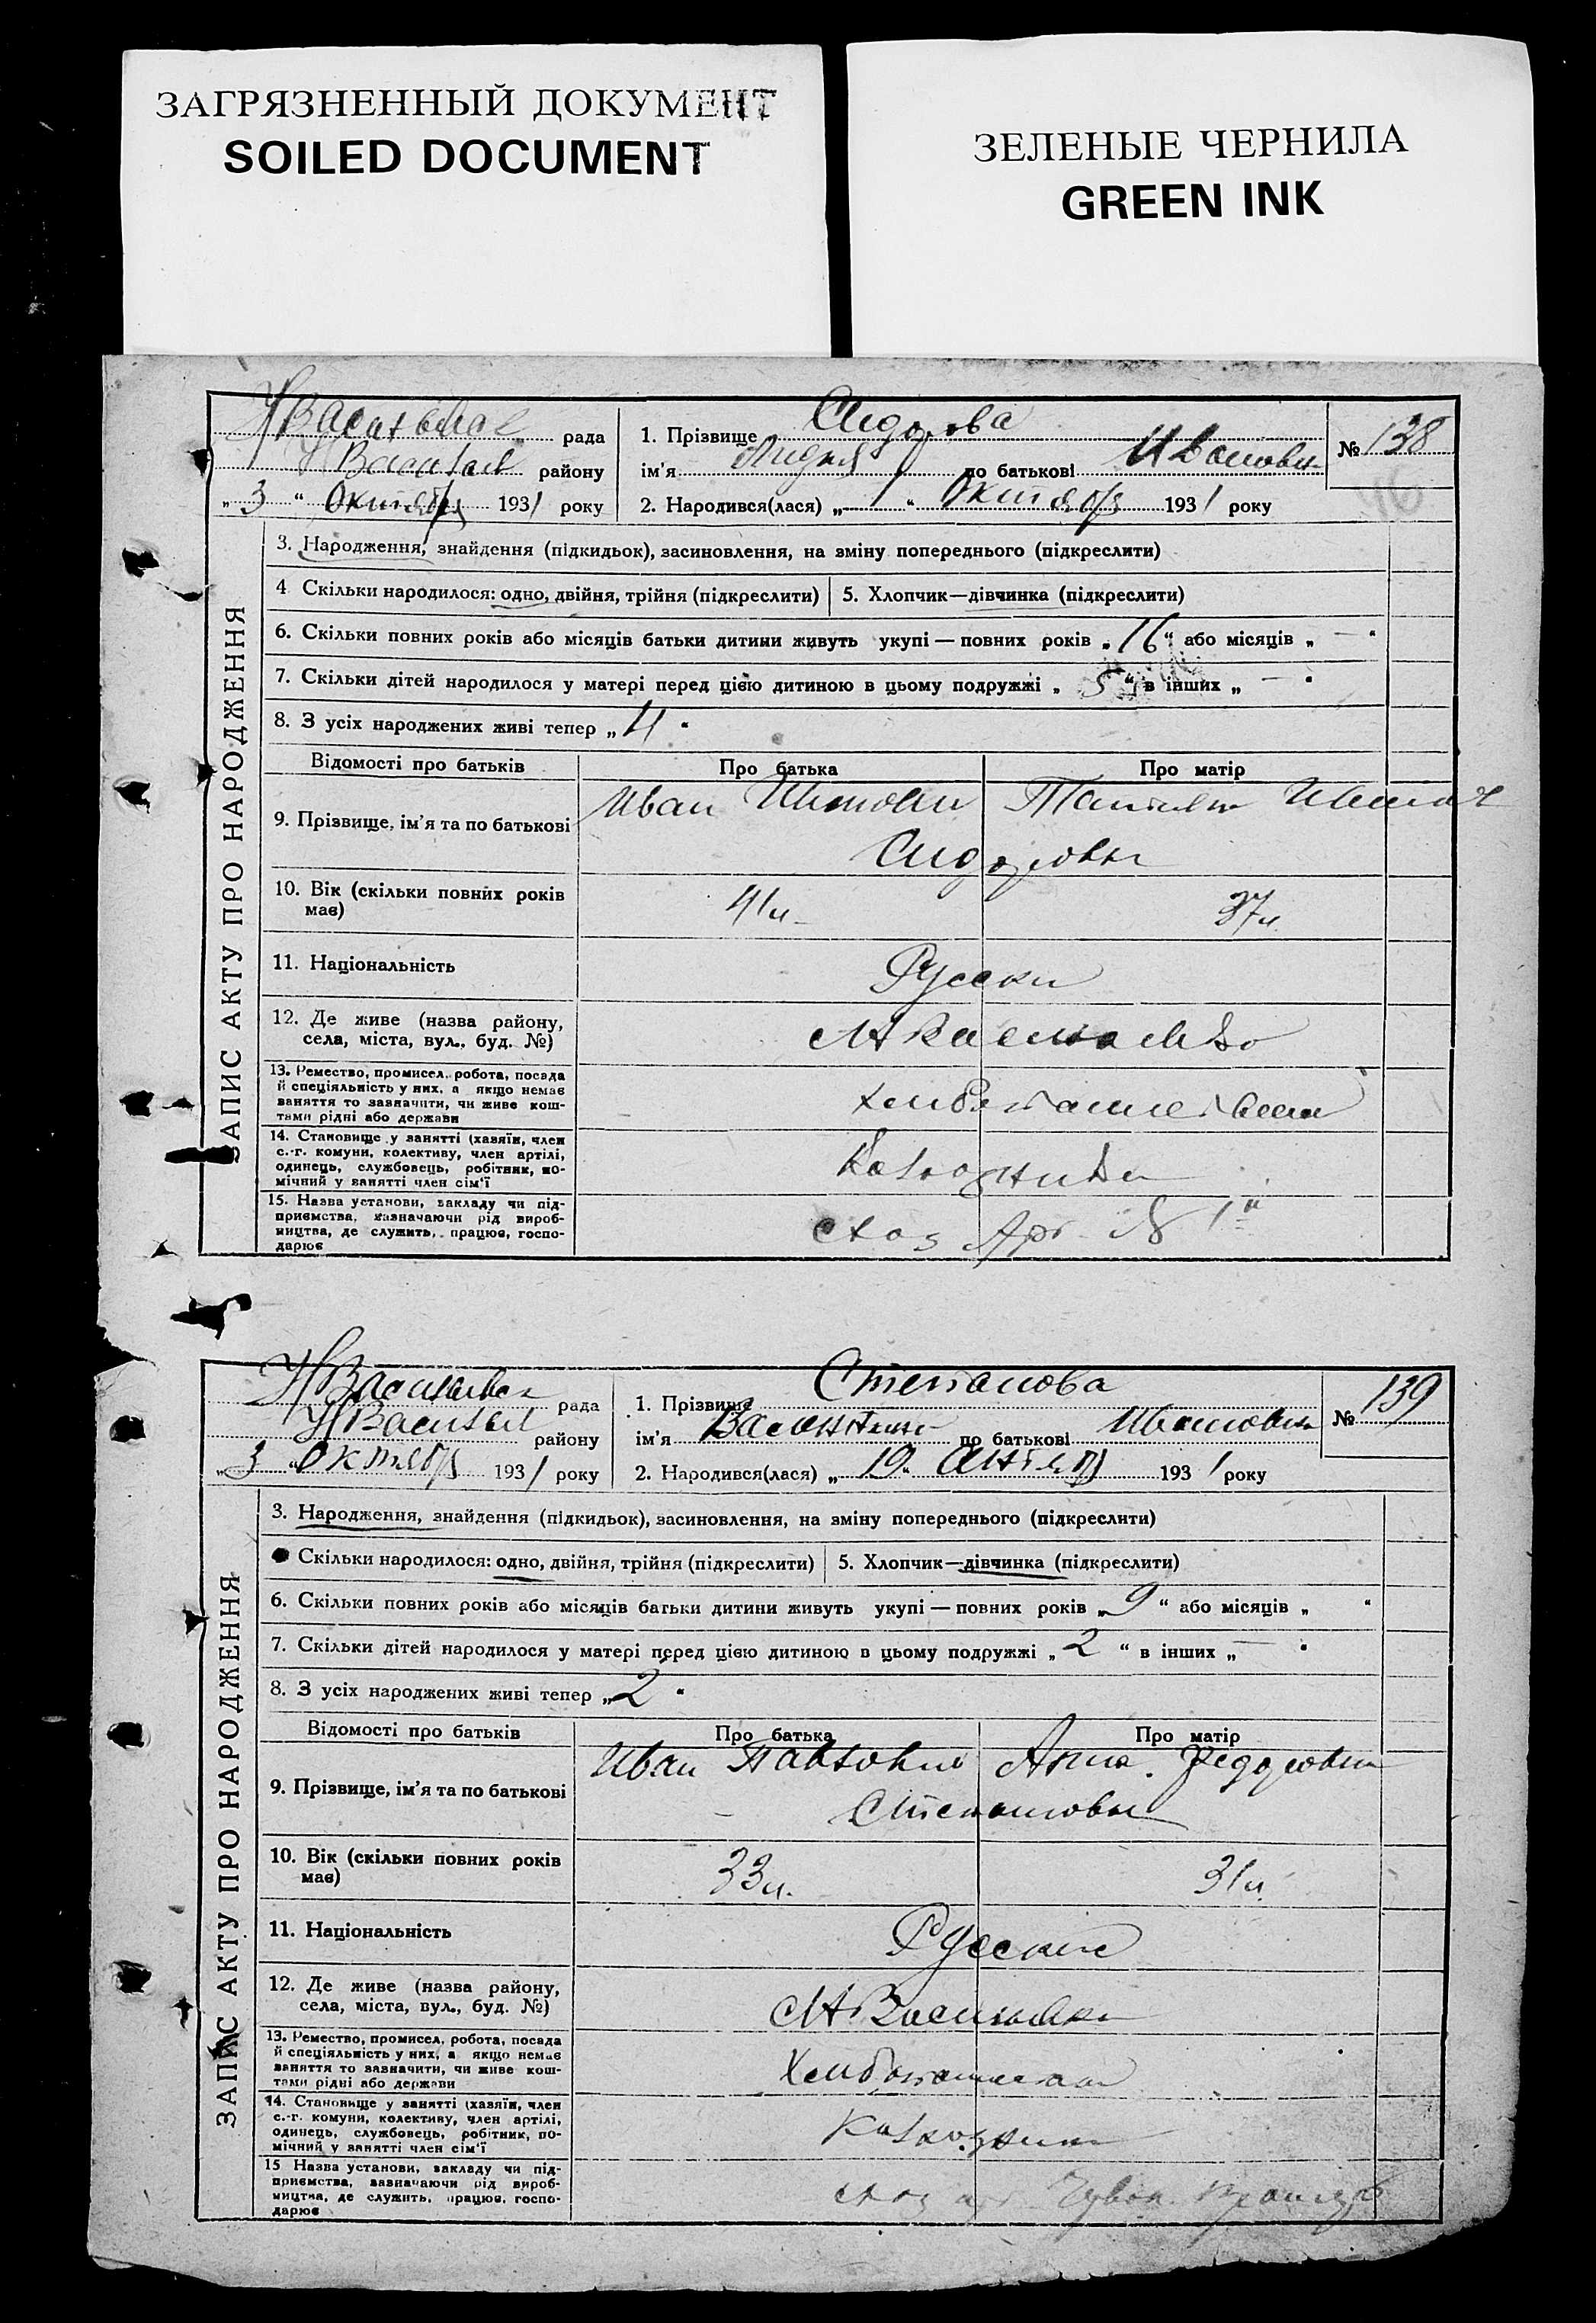 ЗАГРЯЗНЕННЫЙ ДОКУМЕНТ
SOILED DOCUMENT
ЗЕЛЕНЫЕ ЧЕРНИЛА
GREEN INK
рада
району
„ 3 “ Октября 1931 року
1. Прізвище Сидорова
ім'я Лидия по батькові Ивановн
2. Народився(лася) „ 1 “ Октября 1931 року
№ 138
46
ЗАПИС АКТУ ПРО НАРОДЖЕННЯ
3. Народження, знайдення (підкидьок), засиновлення, на зміну попереднього (підкреслити)
4 Скільки народилося: одно, двійня, трійня (підкреслити) 5. Хлопчик—дівчинка (підкреслити)
6. Скільки повних років або місяців батьки дитини живуть укупі — повних років „ 16 “ або місяців „ — “
7. Скільки дітей народилося у матері перед цією дитиною в цьому подружжі „ 5 “ в інших „ — “
8. З усіх народжених живі тепер „ 4 “
Відомості про батьків Про батька Про матір
9. Прізвище, ім'я та по батькові Иван
Сидоровы
10. Вік (скільки повних років 41 37
має)
11. Національність Русски
12. Де живе (назва району,
села, міста, вул., буд. №)
13. Ремество, промисел, робота, посада
й спеціяльність у них, а якщо немає
заняття то зазначити, чи живе кош-
тами рідні або держави
14. Становище у занятті (хазяїн, член
с.-г. комуни, колективу, член артілі,
одинець, службовець, робітник, по-
мічний у занятті член сім'ї
15. Назва установи, закладу чи під-
приємства, зазначаючи рід вироб-
ництва, де служить, працює, госпо-
дарює
рада
району
„ 3 “ Октября 1931 року
1. Прізвище Степанова
ім'я по батькові Ивановн
2. Народився(лася) „ 19 “ 1931 року
№ 139
ЗАПИС АКТУ ПРО НАРОДЖЕННЯ
3. Народження, знайдення (підкидьок), засиновлення, на зміну попереднього (підкреслити)
Скільки народилося: одно, двійня, трійня (підкреслити) 5. Хлопчик—дівчинка (підкреслити)
6. Скільки повних років або місяців батьки дитини живуть укупі — повних років „ 9 “ або місяців „ “
7. Скільки дітей народилося у матері перед цією дитиною в цьому подружжі „ 2 “ в інших „ — “
8. З усіх народжених живі тепер „ 2 “
Відомості про батьків Про батька Про матір
9. Прізвище, ім'я та по батькові Иван Павлович Анна Федоровна
Степановы
10. Вік (скільки повних років 33 31
має)
11. Національність Русские
12. Де живе (назва району,
села, міста, вул., буд. №)
13. Ремество, промисел, робота, посада
й спеціяльність у них, а якщо немає
заняття то зазначити, чи живе кош-
тами рідні або держави
14. Становище у занятті (хазяїн, член
с.-г. комуни, колективу, член артілі,
одинець, службовець, робітник, по-
мічний у занятті член сім'ї
15 Назва установи, закладу чи під-
приємства, зазначаючи рід вироб-
ництва, де служить, працює, госпо-
дарює